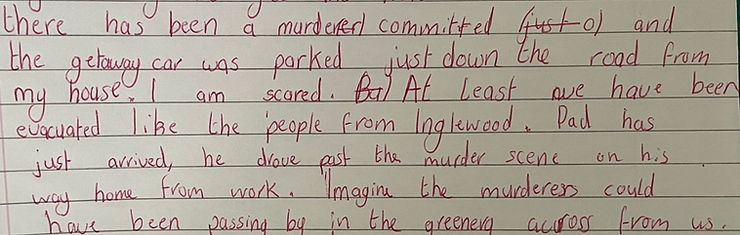 there has been a murderer committed (just o) and
the getaway car was parked just down the road from
my house. I am scared. Ba) At least we have been
evacuated like the people from Inglewood. Dad has
just arrived, he drove past the murder scene on his
way home from work. Imagine the murderers could
have been passing by in the greenery across from us.